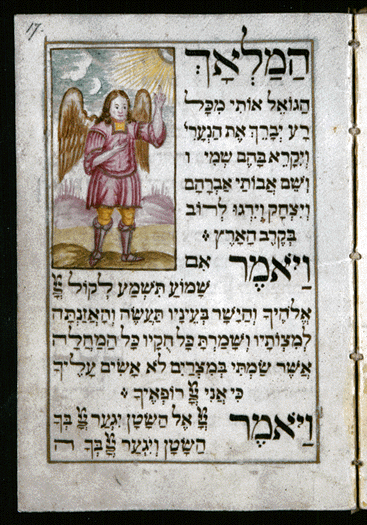 17.
הַמַלְאָךְ
הַגוֹאֵל אוֹתִי מִכָּל
רַע יְבָרֵךְ אֶת הַנְעָרִ׳
וְיִקָרֵא בָהֶם שְׁמִי ו
וְשֵׁם אֲבוֹתַי אַבְרָהָם
וְיִצְחָק וְיִדְגוּ לָרוֹב
בְּקֶרֶב הָאָרֶץ :
וַיֹאמֶר אִם
שָׁמוֹעַ תִּשְׁמַע לְקוֹל יְיָ
אֱלֹהֶיךָ וְהַיָשָׁר בְּעֵינָיו תַּעֲשֶׂה וְהַאֲזַנְתָּה
לְמִצְוֹתָיו וְשָׁמַרְתָּ כָּל חֻקָיו כָּל הַמַחֲלָה
אֲשֶׁר שַׂמְתִּי בְמִצְרַיִם לֹא אָשִׂים עָלֶיךָ
כִּי אֲנִי יְיָ רוֹפְאֶיךָ :
וַיֹאמֶר יְיָ אֶל הַשָׂטָן יִגְעַר יְיָ בְּךָ
הַשָׂטָן וְיִגְעַר יְיָ בְּךָ ה